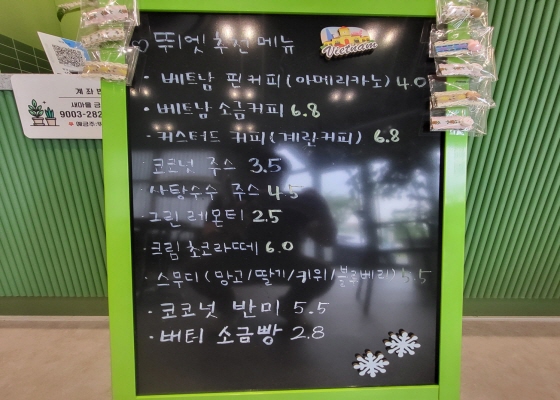 뚜이엣 추천 메뉴
Vietnam
· 베트남 핀커피(아메리카노) 4.0
· 베트남 소금커피 6.8
· 커스터드 커피(계란커피) 6.8
· 코코넛 주스 3.5
· 사탕수수 주스 4.5
· 그린 레몬티 2.5
· 크림 초코라떼 6.0
· 스무디(망고/딸기/키위/블루베리)
· 코코넛 반미 5.5
· 버터 소금빵 2.8
계좌번
새마을 금
9003-282